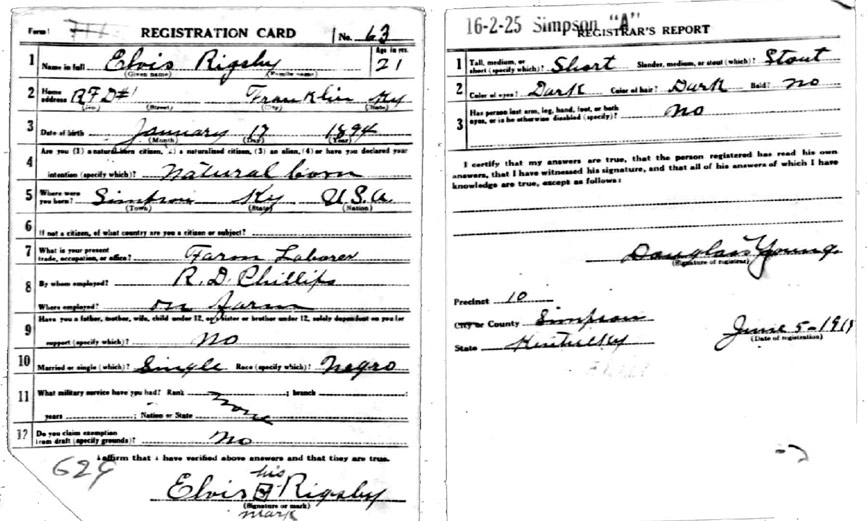 Form 1 REGISTRATION CARD No. 63
1 Name in full Elvis Rigsby Age in yrs. 21
(Given name) (Family name)
2 Home address RFD #1 Franklin Ky
(No.) (Street) (City) (State)
3 Date of birth January 17 1894
(Month) (Day) (Year)
4 Are you (1) a natural-born citizen, (2) a naturalized citizen, (3) an alien, (4) or have you declared your
intention (specify which)? Natural born
5 Where were you born? Simpson Ky U.S.A.
(Town) (State) (Nation)
6 If not a citizen, of what country are you a citizen or subject?
7 What is your present trade, occupation, or office? Farm Laborer
8 By whom employed? R. D. Phillips
Where employed? on farm
9 Have you a father, mother, wife, child under 12, or sister or brother under 12, solely dependent on you for
support (specify which)? No
10 Married or single (which)? Single Race (specify which)? Negro
11 What military service have you had? Rank ; branch
years ; Nation or State None
12 Do you claim exemption from draft (specify grounds)? No
I affirm that I have verified above answers and that they are true.
629
his
Elvis x Rigsby
(Signature or mark)
mark
16-2-25 Simpson "A"
REGISTRAR'S REPORT
1 Tall, medium, or short (specify which)? Short Slender, medium, or stout (which)? Stout
2 Color of eyes? Dark Color of hair? Dark Bald? No
3 Has person lost arm, leg, hand, foot, or both
eyes, or is he otherwise disabled (specify)? No
I certify that my answers are true, that the person registered has read his own
answers, that I have witnessed his signature, and that all of his answers of which I have
knowledge are true, except as follows:
Douglas Young
(Signature of registrar)
Precinct 10
City or County Simpson
State Kentucky
June 5-1917
(Date of registration)